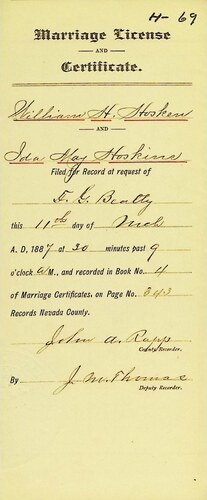 H-69
Marriage License
AND
Certificate.
William H. Hosken
AND
Ida May Hoskins
Filed for Record at request of
D. G. Beatty
this 11th day of Mch
A. D. 1887 at 30 minutes past 9
o'clock A M., and recorded in Book No. 4
of Marriage Certificates, on Page No. 343
Records Nevada County.
John A. Rapp
County Recorder.
By J. M. Thomas
Deputy Recorder.